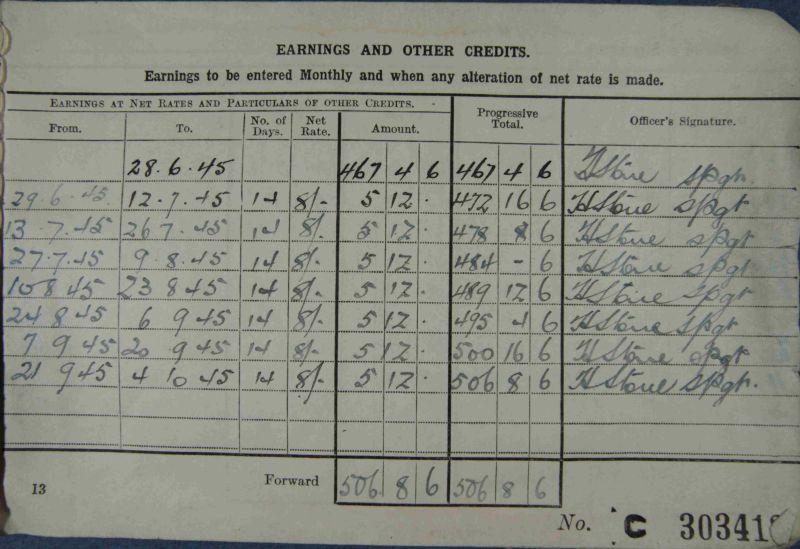 EARNINGS AND OTHER CREDITS.
Earnings to be entered Monthly and when any alteration of net rate is made.
EARNINGS AT NET RATES AND PARTICULARS OF OTHER CREDITS.
From. To. No. of Days. Net Rate. Amount. Progressive Total. Officer's Signature.
28.6.45 467 4 6 467 4 6 HStone Spgt.
29.6.45 12.7.45 14 8/- 5 12 . 472 16 6 HStone Spgt
13.7.45 26 7.45 14 8/- 5 12 . 478 8 6 HStone Spgt
27.7.45 9.8.45 14 8/- 5 12 . 484 - 6 HStone Spgt
10 8 45 23 8 45 14 8/- 5 12 . 489 12 6 HStone Spgt
24 8 45 6 9 45 14 8/- 5 12 . 495 4 6 HStone Spgt
7 9 45 20 9 45 14 8/- 5 12 . 500 16 6 HStone Spgt
21 9 45 4 10 45 14 8/- 5 12 . 506 8 6 HStone Spgt.
Forward 506 8 6 506 8 6
13
No. C 30341